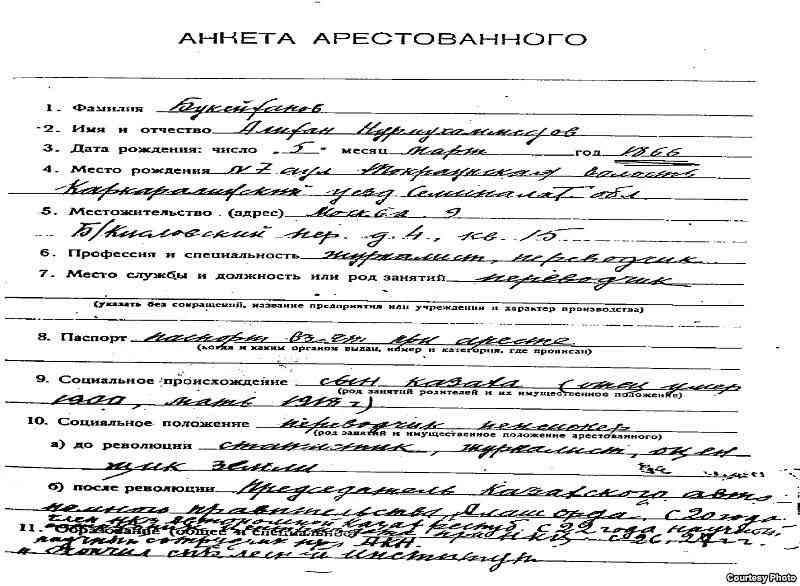 АНКЕТА АРЕСТОВАННОГО
1. Фамилия Букейханов
2. Имя и отчество Алихан Нурмухаммедов
3. Дата рождения: число „5“ месяц март год 1866
4. Место рождения №7 аул Токраунская волость
Каркаралинский уезд Семипалат. обл.
5. Местожительство (адрес) Москва 9
Б/Кисловский пер. д. 4, кв. 15
6. Профессия и специальность журналист, переводчик
7. Место службы и должность или род занятий переводчик
(указать без сокращений, название предприятия или учреждения и характер производства)
8. Паспорт паспорт вз-ят при аресте
(когда и каким органом выдан, номер и категория, где прописан)
9. Социальное происхождение сын казаха (отец умер
(род занятий родителей и их имущественное положение)
1900, мать 1917 г)
10. Социальное положение переводчик пенсионер
(род занятий и имущественное положение арестованного)
а) до революции статистик, журналист, оцен
щик земли
б) после революции Председатель Казахского авто
номного правительства Алашорда – с 20 года
член с 22 года научный
11. Образование (общее и специальное)
научный сотрудник при
и окончил институт
Courtesy Photo